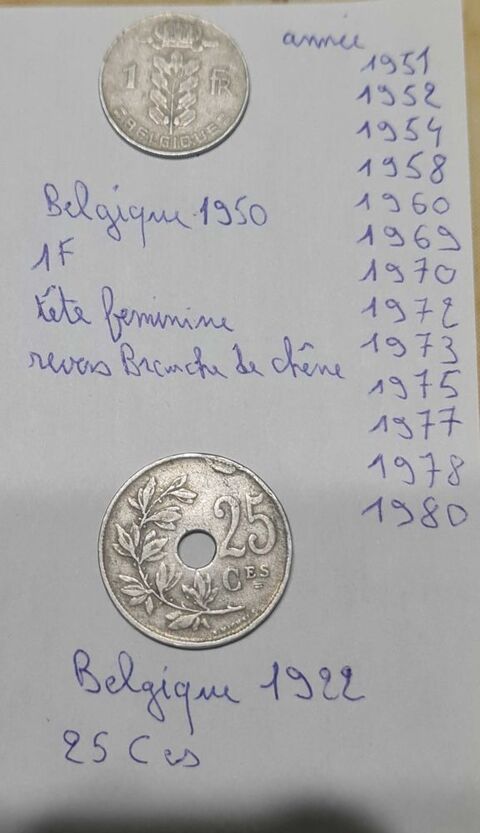 1 FR
BELGIQUE
année
1951
1952
1954
1958
1960
1969
1970
1972
1973
1975
1977
1978
1980
Belgique 1950
1F
tête feminine
revers Branche de chêne
25
CES
Belgique 1922
25 Ces